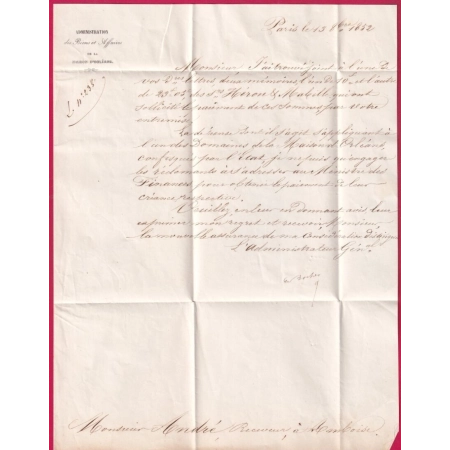 ADMINISTRATION
des Biens et Affaires
DE LA
MAISON D'ORLÉANS.
L. n° 238.
Paris le 13 8bre 1852
Monsieur J'ai trouvé joint à l'une de
vos lettres deux mémoires l'un de et l'autre
de des Srs Héron & qui ont
sollicité le paiement de ces sommes par votre
entremise.
La dépense dont il s'agit s'appliquant à
l'un des Domaines de la Maison d'Orléans,
confisqués par l'État, je ne puis qu'engager
les réclamants à s'adresser au Ministre des
Finances pour obtenir le paiement de leur
créance respective.
Veuillez, en leur en donnant avis, leur
exprimer mon regret et recevoir, Monsieur
la nouvelle assurance de ma considération distinguée
L'Administrateur Génal
Monsieur André, Receveur, à Amboise.